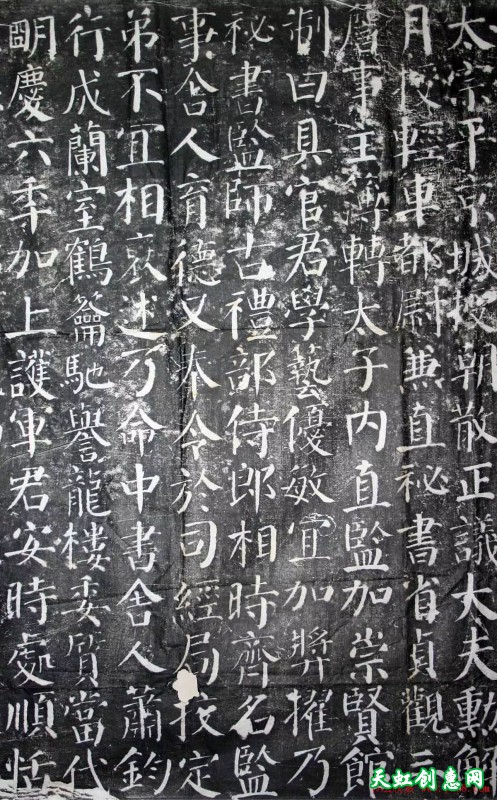 太宗平京城授朝散正議大夫勳解
月授輕車都尉兼直秘書省貞觀三
詹事主簿轉太子内直監加崇賢館
制曰具官君學藝優敏宜加獎擢乃
秘書監師古禮部侍郎相時齊名監
事舍人育德又奉令於司經局校定
弟不宜相褒述乃命中書舍人蕭鈞
行成蘭室鶴籥馳譽龍樓委質當代
明慶六年加上護軍君安時處順恬
天虹创惠网